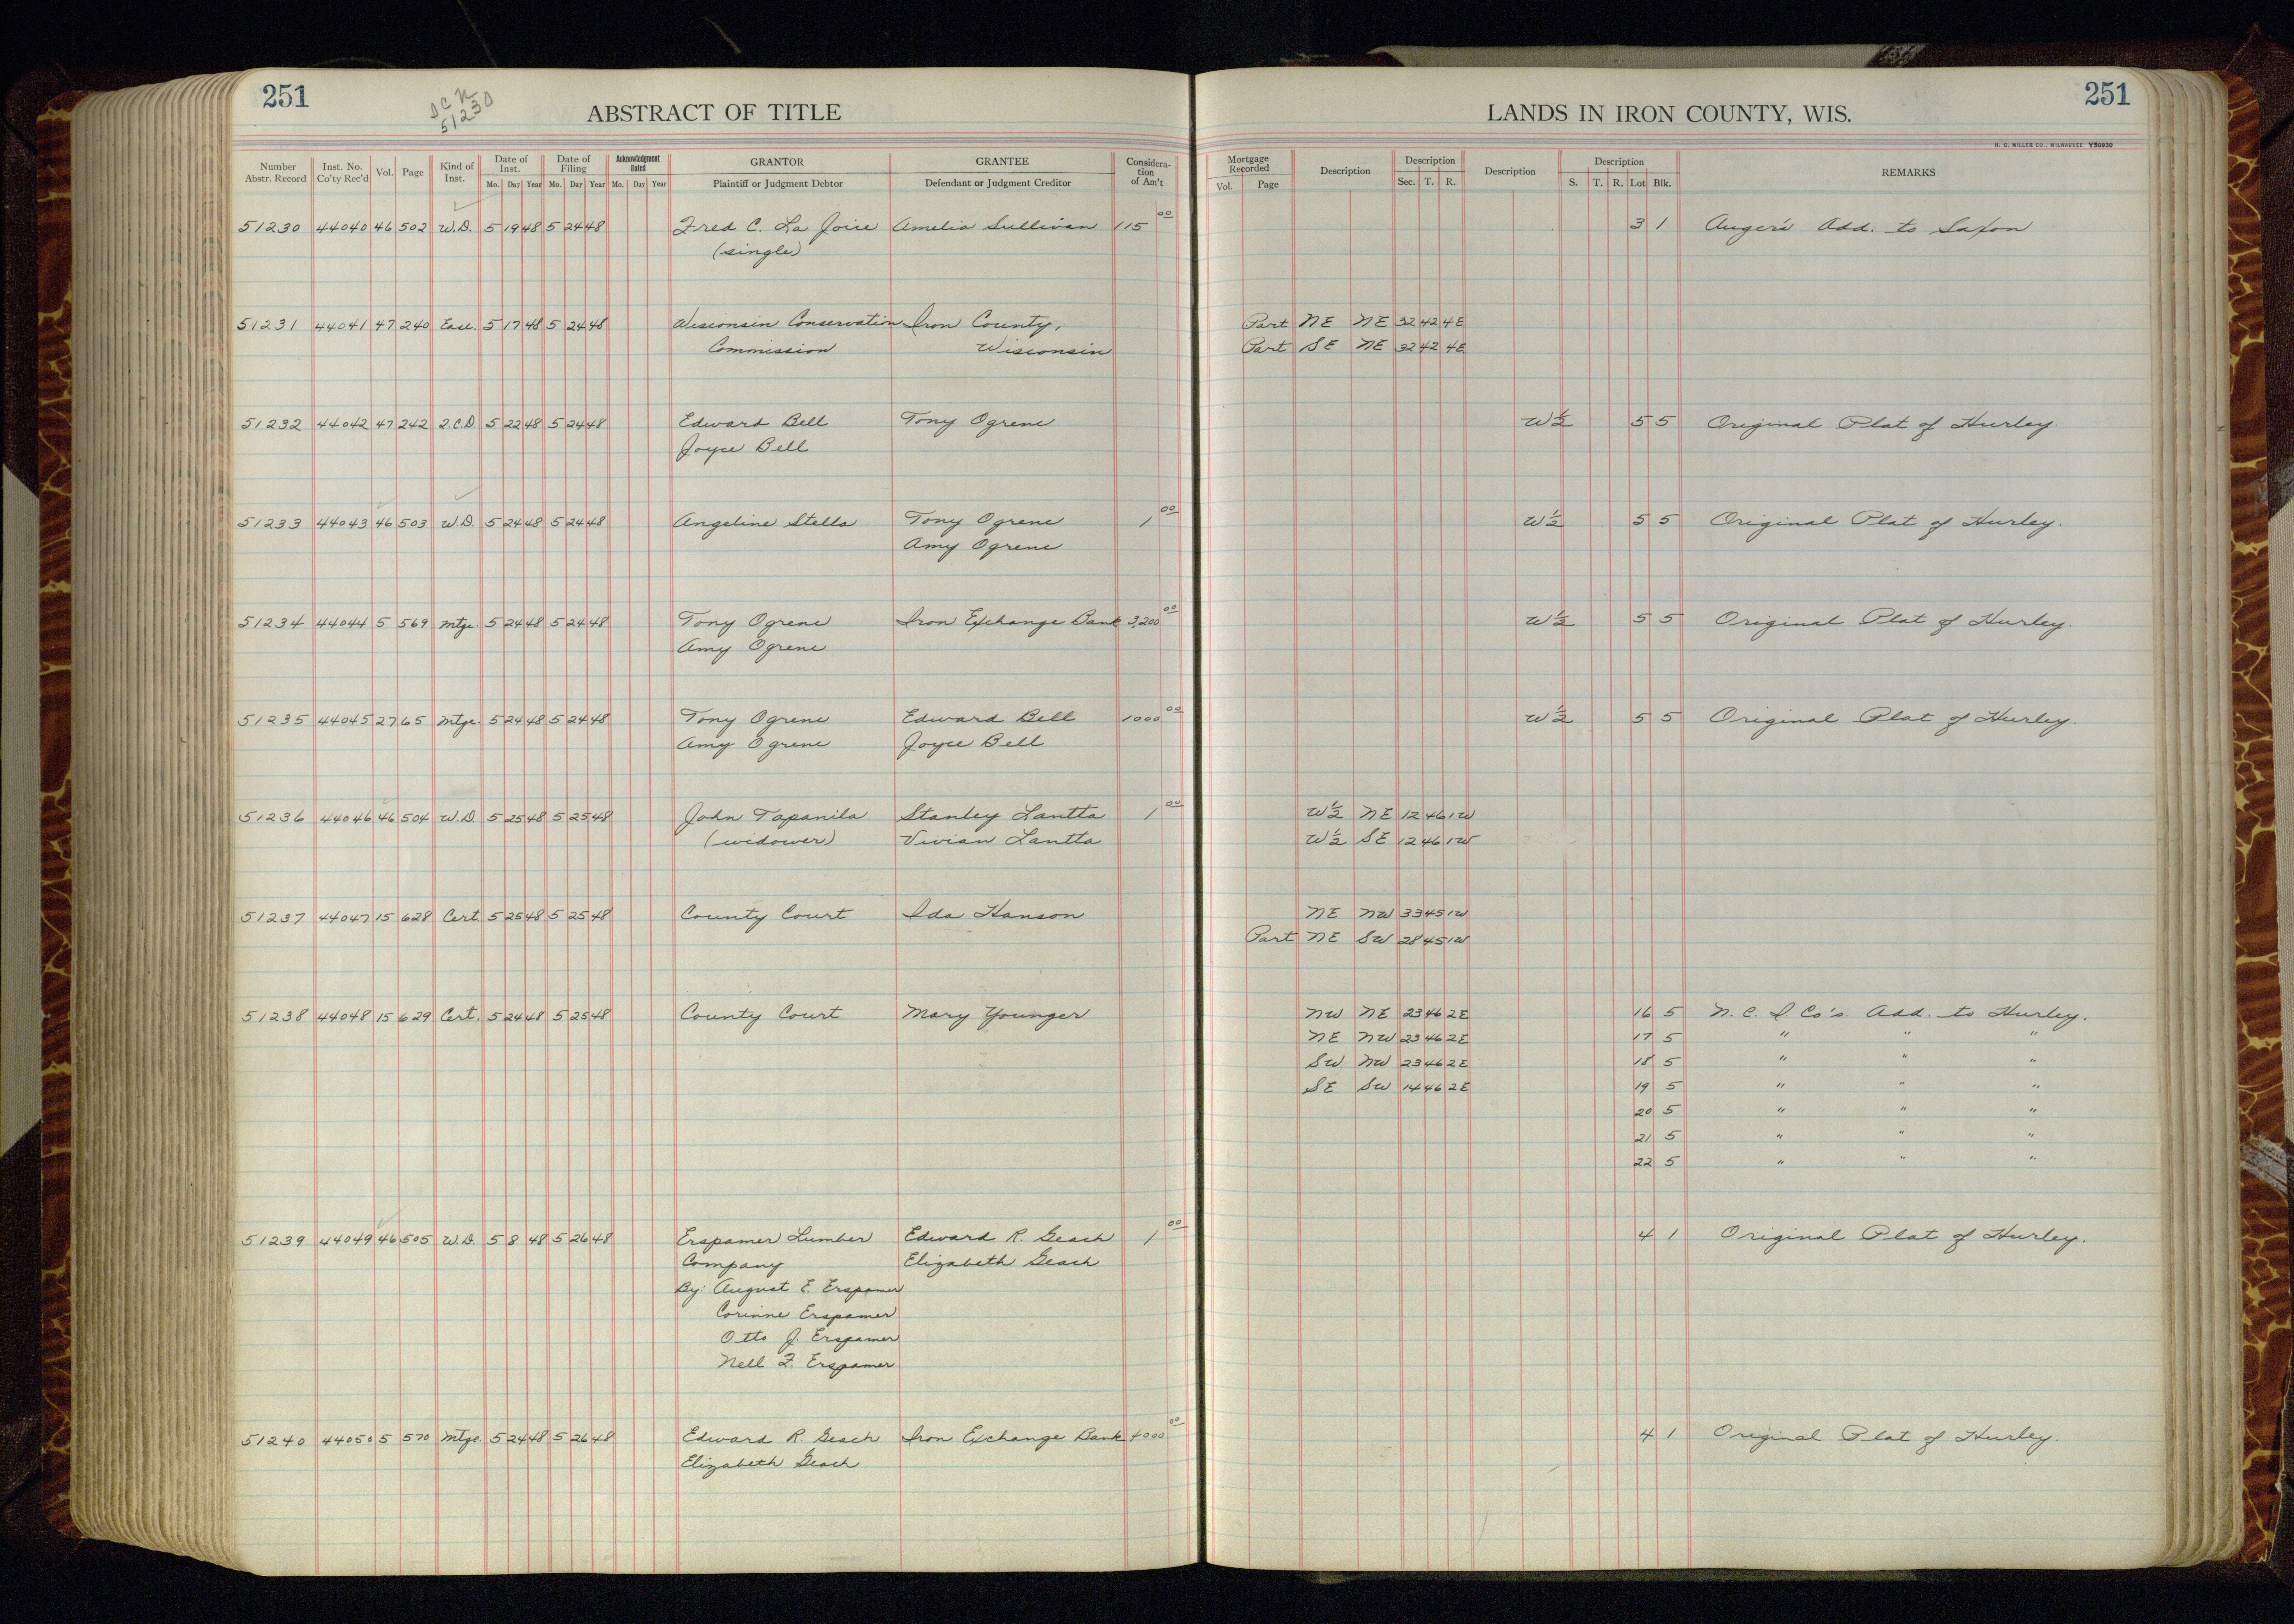 251
D C N
51230
ABSTRACT OF TITLE
LANDS IN IRON COUNTY, WIS.
251
H. C. MILLER CO., MILWAUKEE Y50930
Number Abstr. Record | Inst. No. Co'ty Rec'd | Vol. | Page | Kind of Inst. | Date of Inst. Mo. Day Year | Date of Filing Mo. Day Year | Acknowledgment Dated Mo. Day Year | GRANTOR Plaintiff or Judgment Debtor | GRANTEE Defendant or Judgment Creditor | Considera-tion of Am't | Mortgage Recorded Vol. Page | Description | Description Sec. T. R. | Description | Description S. T. R. Lot Blk. | REMARKS
51230 44040 46 502 W.D. 5 19 48 5 24 48 Fred C. La Joice Amelia Sullivan 115 00 3 1 Auger's Add. to Saxon
(single)
51231 44041 47 240 Ease. 5 17 48 5 24 48 Wisconsin Conservation Iron County, Part NE NE 32 42 4E
Commission Wisconsin Part SE NE 32 42 4E
51232 44042 47 242 2.C.D. 5 22 48 5 24 48 Edward Bell Tony Ogrene W½ 5 5 Original Plat of Hurley.
Joyce Bell
51233 44043 46 503 W.D. 5 24 48 5 24 48 Angeline Stella Tony Ogrene 1 00 W½ 5 5 Original Plat of Hurley.
Amy Ogrene
51234 44044 5 569 Mtge. 5 24 48 5 24 48 Tony Ogrene Iron Exchange Bank 3,200 00 W½ 5 5 Original Plat of Hurley.
Amy Ogrene
51235 44045 27 65 Mtge. 5 24 48 5 24 48 Tony Ogrene Edward Bell 1000 00 W½ 5 5 Original Plat of Hurley.
Amy Ogrene Joyce Bell
51236 44046 46 504 W.D. 5 25 48 5 25 48 John Tapanila Stanley Lantta 1 00 W½ NE 12 46 1W
(widower) Vivian Lantta W½ SE 12 46 1W
51237 44047 15 628 Cert. 5 25 48 5 25 48 County Court Ida Hanson NE NW 33 45 1W
Part NE SW 28 45 1W
51238 44048 15 629 Cert. 5 24 48 5 25 48 County Court Mary Younger NW NE 23 46 2E 16 5 N. C. I. Co's. Add. to Hurley.
NE NW 23 46 2E 17 5 " " "
SW NW 23 46 2E 18 5 " " "
SE SW 14 46 2E 19 5 " " "
20 5 " " "
21 5 " " "
22 5 " " "
51239 44049 46 505 W.D. 5 8 48 5 26 48 Erspamer Lumber Edward R. Geach 1 00 4 1 Original Plat of Hurley.
Company Elizabeth Geach
By: August E. Erspamer
Corinne Erspamer
Otto J. Erspamer
Nell F. Erspamer
51240 44050 5 570 Mtge. 5 24 48 5 26 48 Edward R. Geach Iron Exchange Bank 4000 00 4 1 Original Plat of Hurley.
Elizabeth Geach